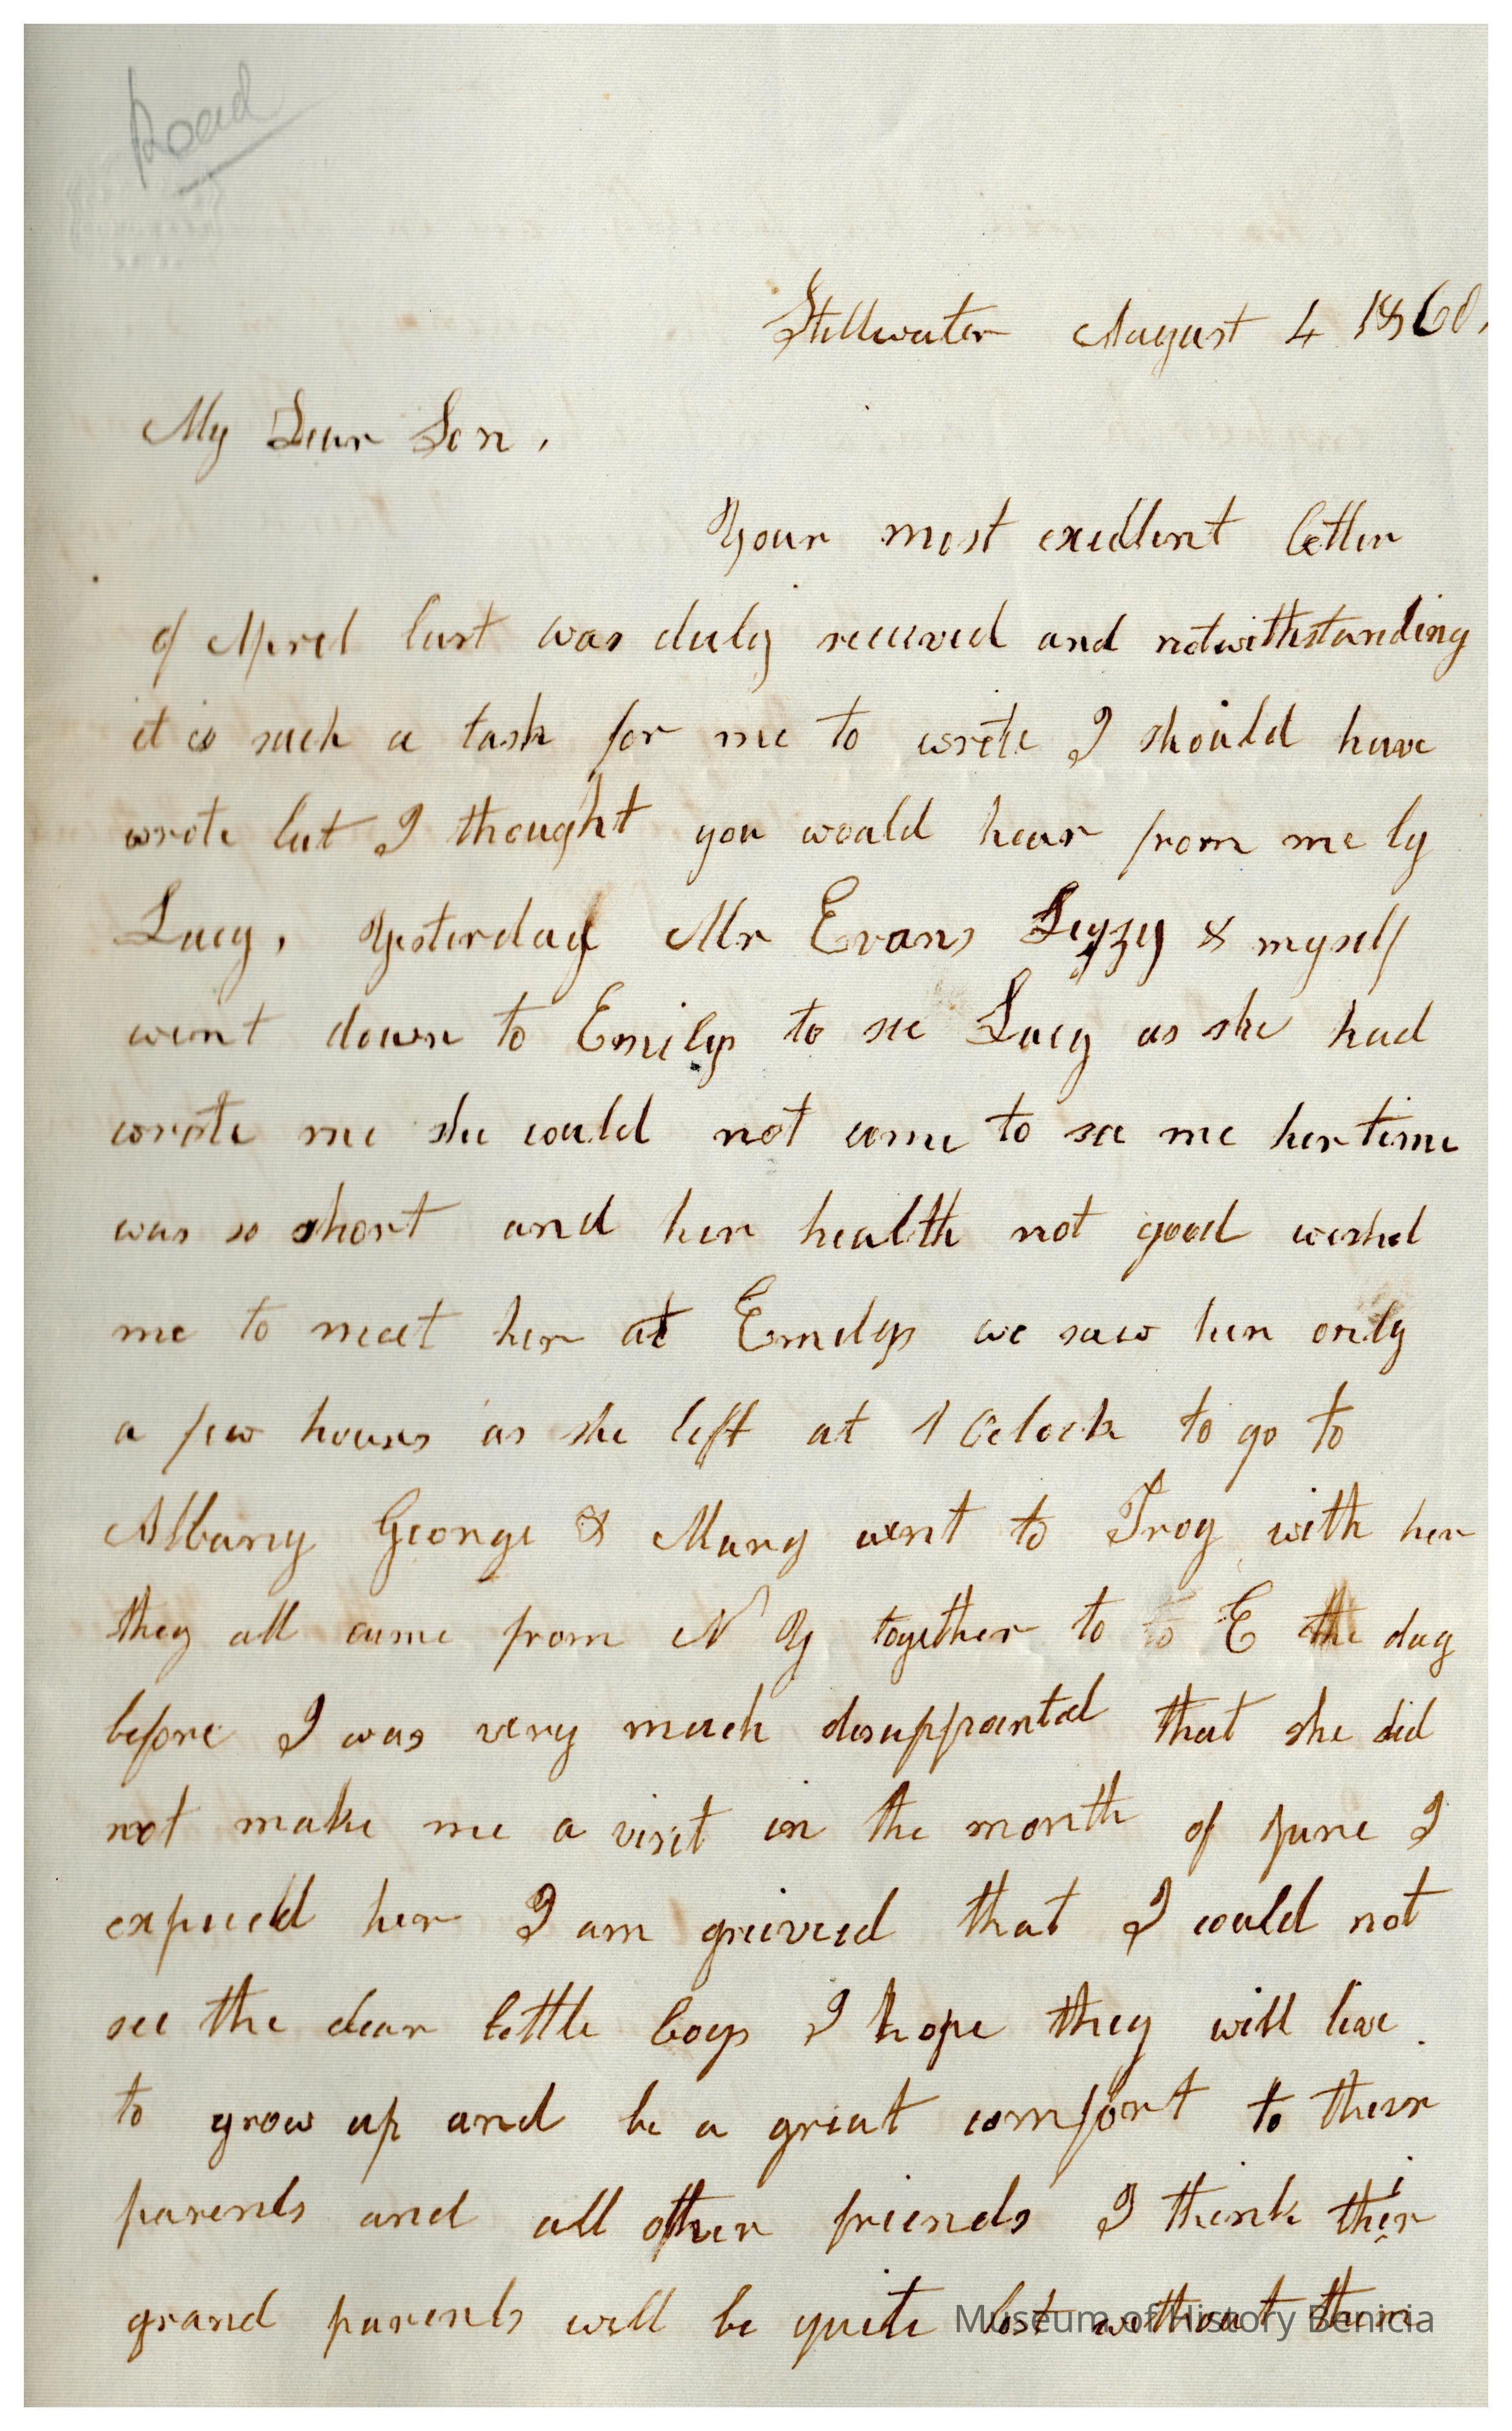 Read
Stillwater August 4 1860.
My Dear Son,
Your most excellent letter
of April last was duly received and notwithstanding
it is such a task for me to write I should have
wrote but I thought you would hear from me by
Lucy. Yesterday Mr Evans Lizzy & myself
went down to Emilys to see Lucy as she had
wrote me she could not come to see me her time
was so short and her health not good wished
me to meet her at Emilys we saw her only
a few hours as she left at 1 Oclock to go to
Albany George & Mary went to Troy with her
they all came from N Y together to to E the day
before I was very much disappointed that she did
not make me a visit in the month of June I
expected her I am grieved that I could not
see the dear little boys I hope they will live
to grow up and be a great comfort to their
parents and all other friends I think their
grand parents will be quite lost without them
Museum of History Benicia